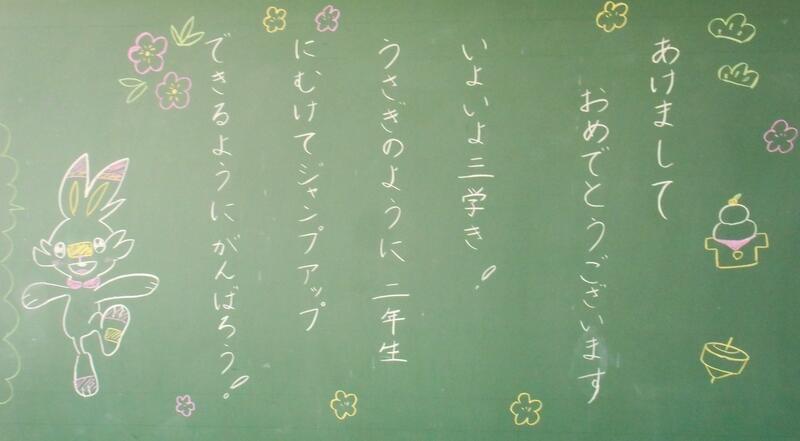 あけまして
おめでとうございます
いよいよ三学き!
うさぎのように二年生
にむけてジャンプアップ
できるようにがんばろう!